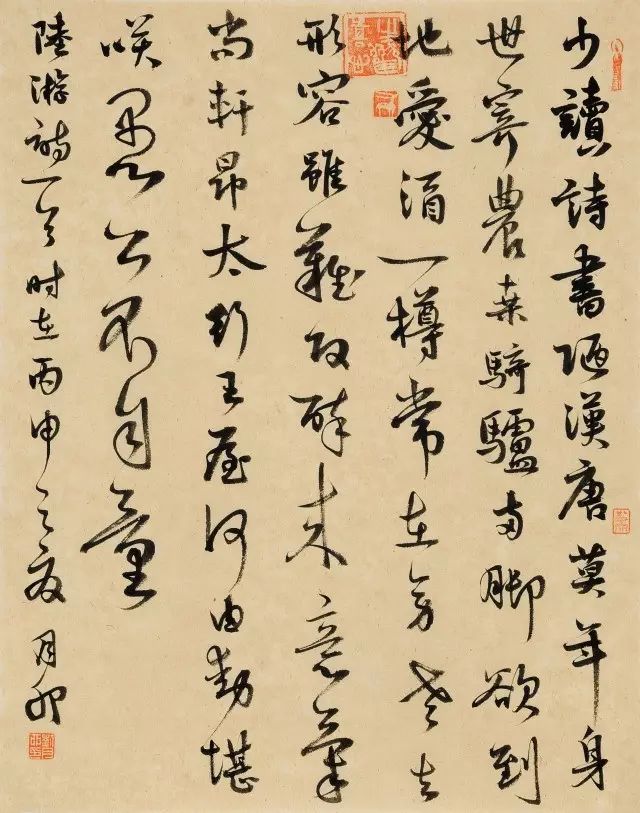 少讀詩書陋漢唐莫年身
世寄農桒騎驢兩脚欲到
地愛酒一樽常在旁老去
形容雖難改醉来意氣
尚軒昂太行王屋何由動堪
咲愚公不自量
陸游詩一首时在丙申之夏月卯